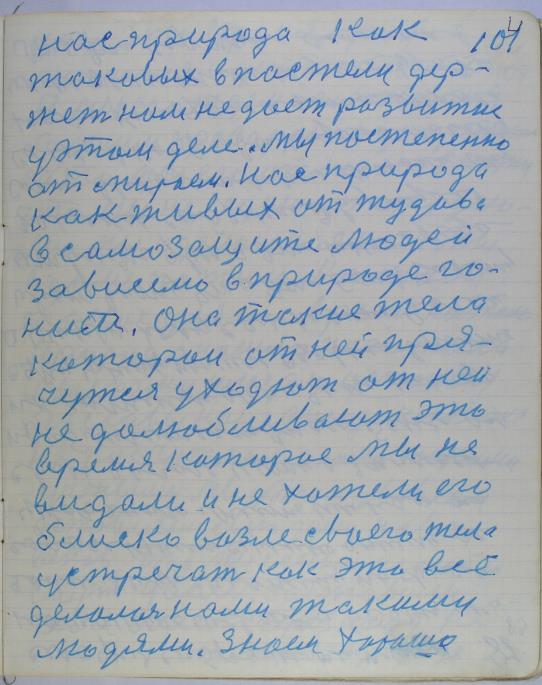 104
нас природа как
таковых в пастели дер-
жет нам не дает развитие
у этом деле. Мы постепенно
отмираем. Нас природа
как живых от тудова
в самозащите людей
зависемо в природе го-
нит. Она такие тела
каторои от ней пря-
чутся уходют от ней
не далюбливают это
время каторое мы не
видали и не хотели его
блиско возле своего тела
устречат как это всё
делалоя нами такими
людями. Знаем хорашо